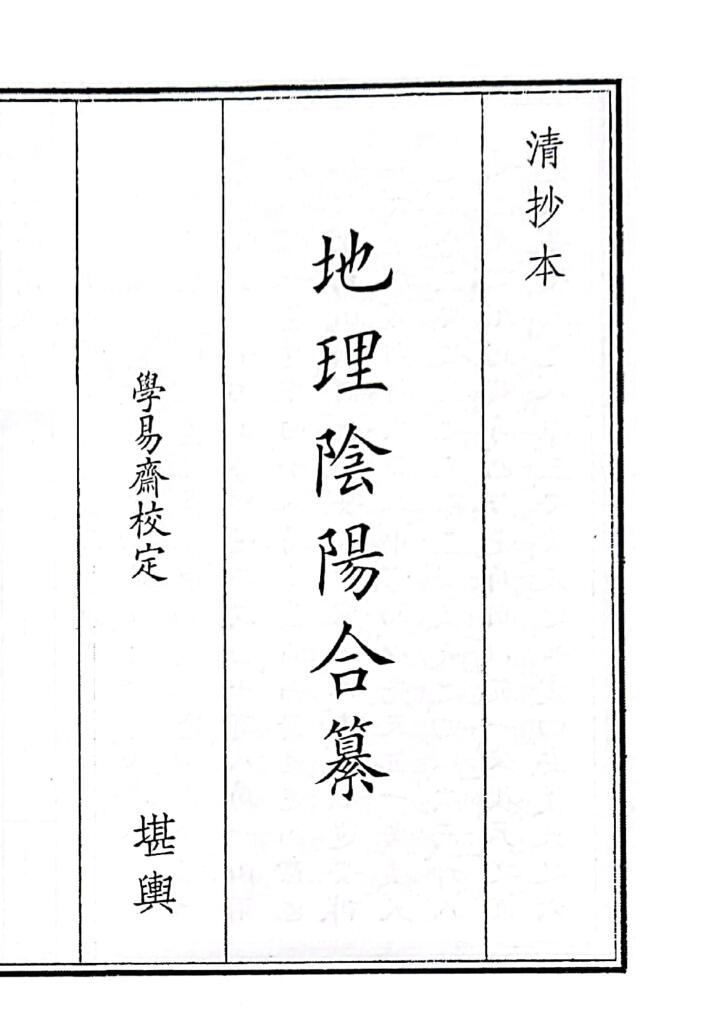 清抄本
地理陰陽合纂
學易齋校定
堪輿